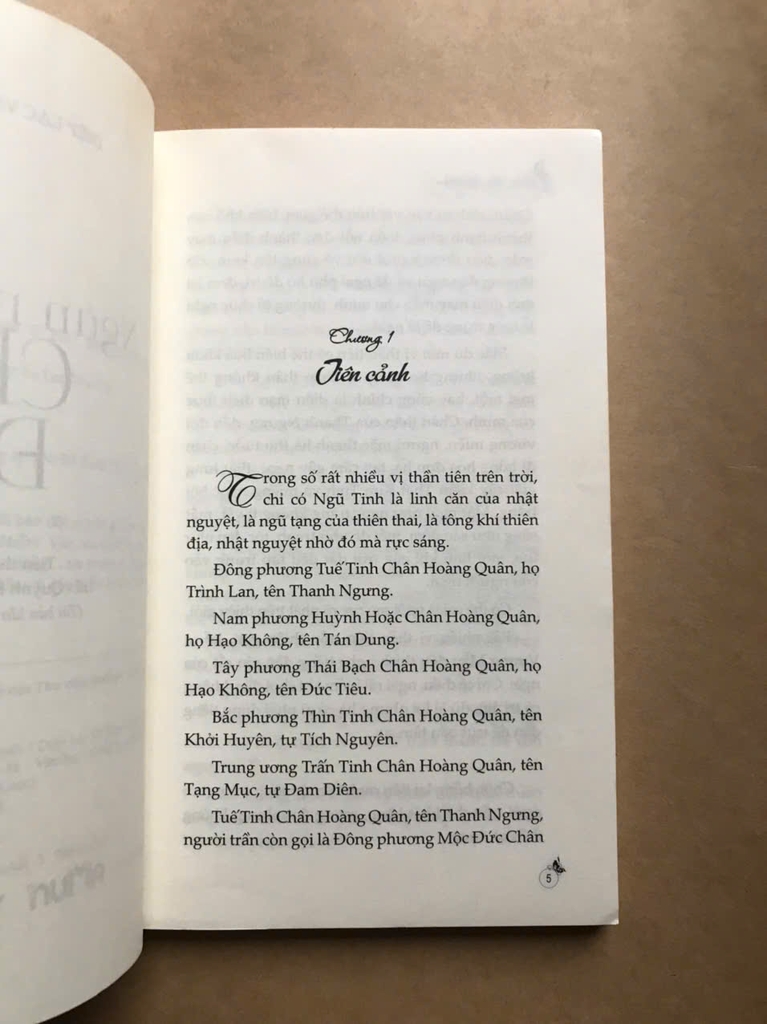 Chương 1
Tiên cảnh
Trong số rất nhiều vị thần tiên trên trời,
chỉ có Ngũ Tinh là linh căn của nhật
nguyệt, là ngũ tạng của thiên thai, là tông khí thiên
địa, nhật nguyệt nhờ đó mà rực sáng.
Đông phương Tuế Tinh Chân Hoàng Quân, họ
Trình Lan, tên Thanh Ngưng.
Nam phương Huỳnh Hoặc Chân Hoàng Quân,
họ Hạo Không, tên Tán Dung.
Tây phương Thái Bạch Chân Hoàng Quân, họ
Hạo Không, tên Đức Tiêu.
Bắc phương Thìn Tinh Chân Hoàng Quân, tên
Khởi Huyên, tự Tích Nguyên.
Trung ương Trấn Tinh Chân Hoàng Quân, tên
Tạng Mục, tự Đam Diên.
Tuế Tinh Chân Hoàng Quân, tên Thanh Ngưng,
người trần còn gọi là Đông phương Mộc Đức Chân
5